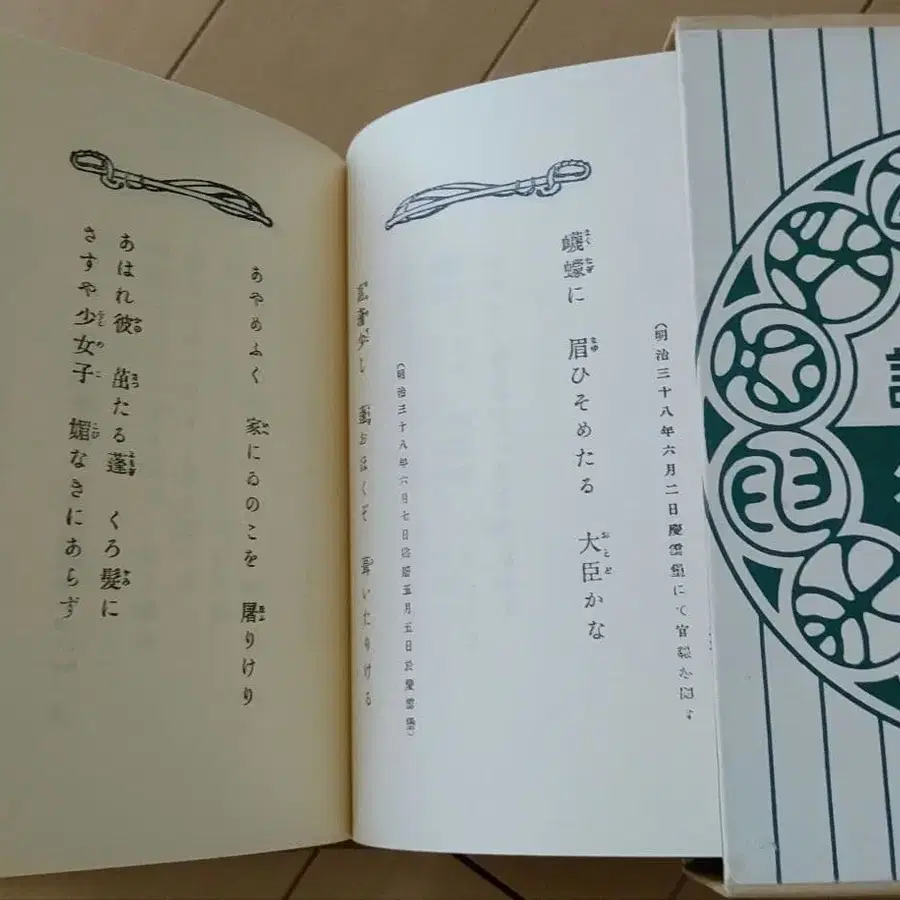 (明治三十八年六月二日慶雲堡にて官
蠛蠓に　眉ひそめたる　大臣かな
(明治三十八年六月七日陰暦五月五日於慶雲堡)
菖蒲少し　蓬おほくぞ　葺いたりける
あやめふく　家にゐのこを　屠りけり
あはれ彼　茁たる蓬　くろ髮に
さすや少女子　媚なきにあらず